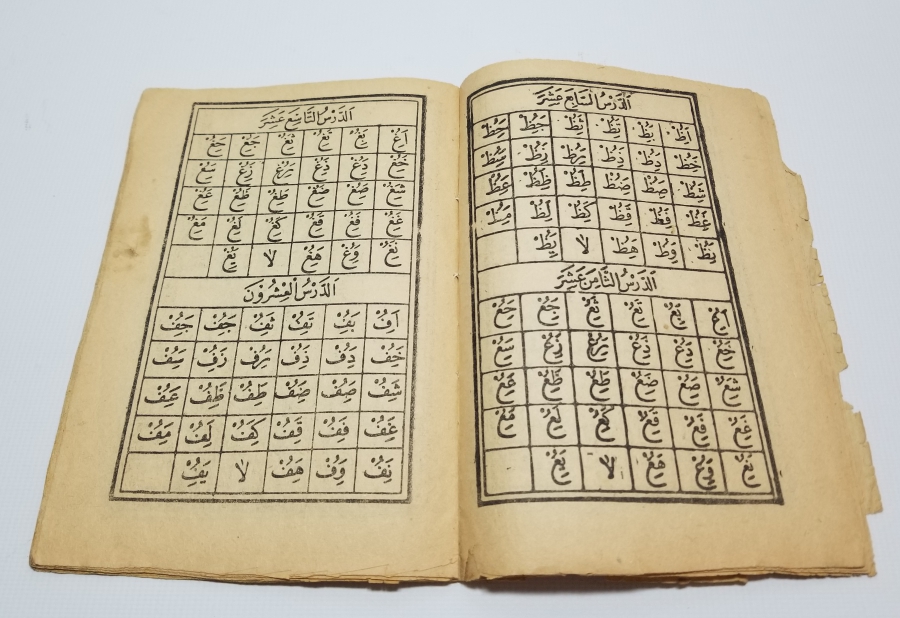 اَلدَّرْسُ السَّابِعَ عَشَرَ
اظ بظ تظ ثظ جظ حظ
خظ دظ ذظ رظ زظ سظ
شظ صظ ضظ طظ ظظ عظ
غظ فظ قظ كظ لظ مظ
نظ وظ هظ لا يظ
اَلدَّرْسُ الثَّامِنَ عَشَرَ
اع بع تع ثع جع حع
خع دع ذع رع زع سع
شع صع ضع طع ظع عع
غع فع قع كع لع مع
نع وع هع لا يع
اَلدَّرْسُ التَّاسِعَ عَشَرَ
اغ بغ تغ ثغ جغ حغ
خغ دغ ذغ رغ زغ سغ
شغ صغ ضغ طغ ظغ عغ
غغ فغ قغ كغ لغ مغ
نغ وغ هغ لا يغ
اَلدَّرْسُ الْعِشْرُونَ
اف بف تف ثف جف حف
خف دف ذف رف زف سف
شف صف ضف طف ظف عف
غف فف قف كف لف مف
نف وف هف لا يف